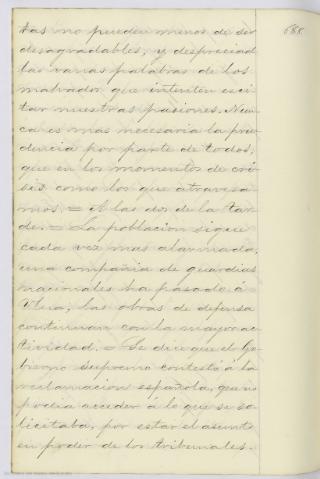 688.
tas no pueden menos de ser
desagradables, y despreciad
las vanas palabras de los
malvados que intenten exci
tar nuestras pasiones. Nun
ca es mas necesaria la pru
dencia por parte de todos,
que en los momentos de cri
sis como los que atravesa
mos. = A las dos de la tar
de. = La poblacion sigue
cada vez mas alarmada,
una compañia de guardias
nacionales ha pasado á
Ulua; las obras de defensa
continuan con la mayor ac
tividad. = Se dice que el Go
bierno Supremo contestó á la
reclamacion española, que no
podia acceder á lo que se so
licitaba, por estar el asunto
en poder de los tribunales.